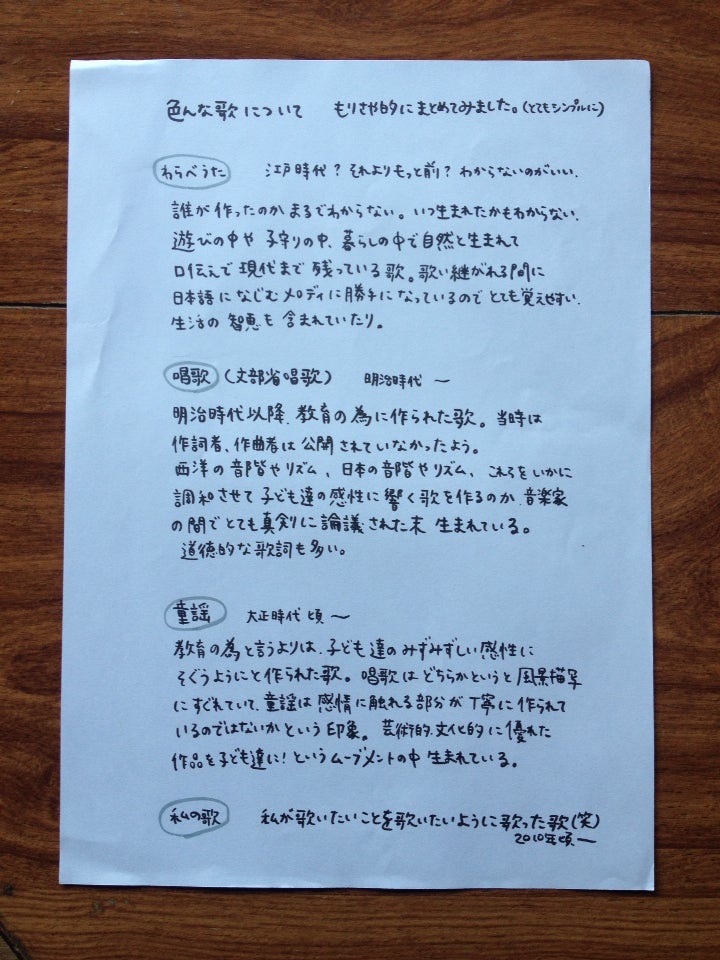 色んな歌について　もりさや的にまとめてみました。(とてもシンプルに)
わらべうた　江戸時代？それよりもっと前？わからないのがいい.
誰が作ったのかまるでわからない。いつ生まれたかもわからない.
遊びの中や子守りの中、暮らしの中で自然と生まれて
口伝えで現代まで残っている歌。歌い継がれる間に
日本語になじむメロディに勝手になっているのでとても覚えやすい.
生活の智恵も含まれていたり。
唱歌（文部省唱歌）　明治時代 ～
明治時代以降.教育の為に作られた歌。当時は
作詞者、作曲者は公開されていなかったよう。
西洋の音階やリズム、日本の音階やリズム、これらをいかに
調和させて子ども達の感性に響く歌を作るのか.音楽家
の間でとても真剣に論議された末 生まれている。
道徳的な歌詞も多い。
童謡　大正時代頃～
教育の為と言うよりは、子ども達のみずみずしい感性に
そぐうようにと作られた歌。唱歌はどちらかというと風景描写
にすぐれていて、童謡は感情に触れる部分が丁寧に作られて
いるのではないかという印象。芸術的.文化的に優れた
作品を子ども達に！というムーブメントの中生まれている。
私の歌　私が歌いたいことを歌いたいように歌った歌(笑)
2010年頃～